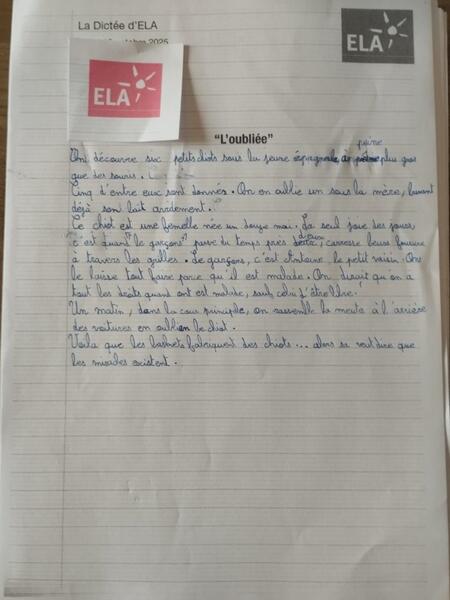 La Dictée d'ELA
octobre 2025
ELA
ELA
"L'oubliée"
peine
On découvre six petits chiots sous la jeune épagneule à plus gros
que des souris.
Cinq d'entre eux sont donnés. On en oublie un sous la mère, buvant
déjà son lait ardement.
Le chiot est une femelle née un douze mai. Sa seul joie des jours,
c'est quant le garçons passe du temps près d'eux, caresse leurs fourrure
à travers les grilles. Le garçons, c'est Antoine, le petit voisin. On
le laisse tout faire parce qu'il est malade. On dirait qu'on a
tout les droits quant ont est malade, sauf celui d'être libre.
Un matin, dans la cour principale, on rassemble la meute à l'arrière
des voitures en oublien le chiot.
Voila que les baskets fabriquent des chiots... alors sa veut dire que
les miracles existent.